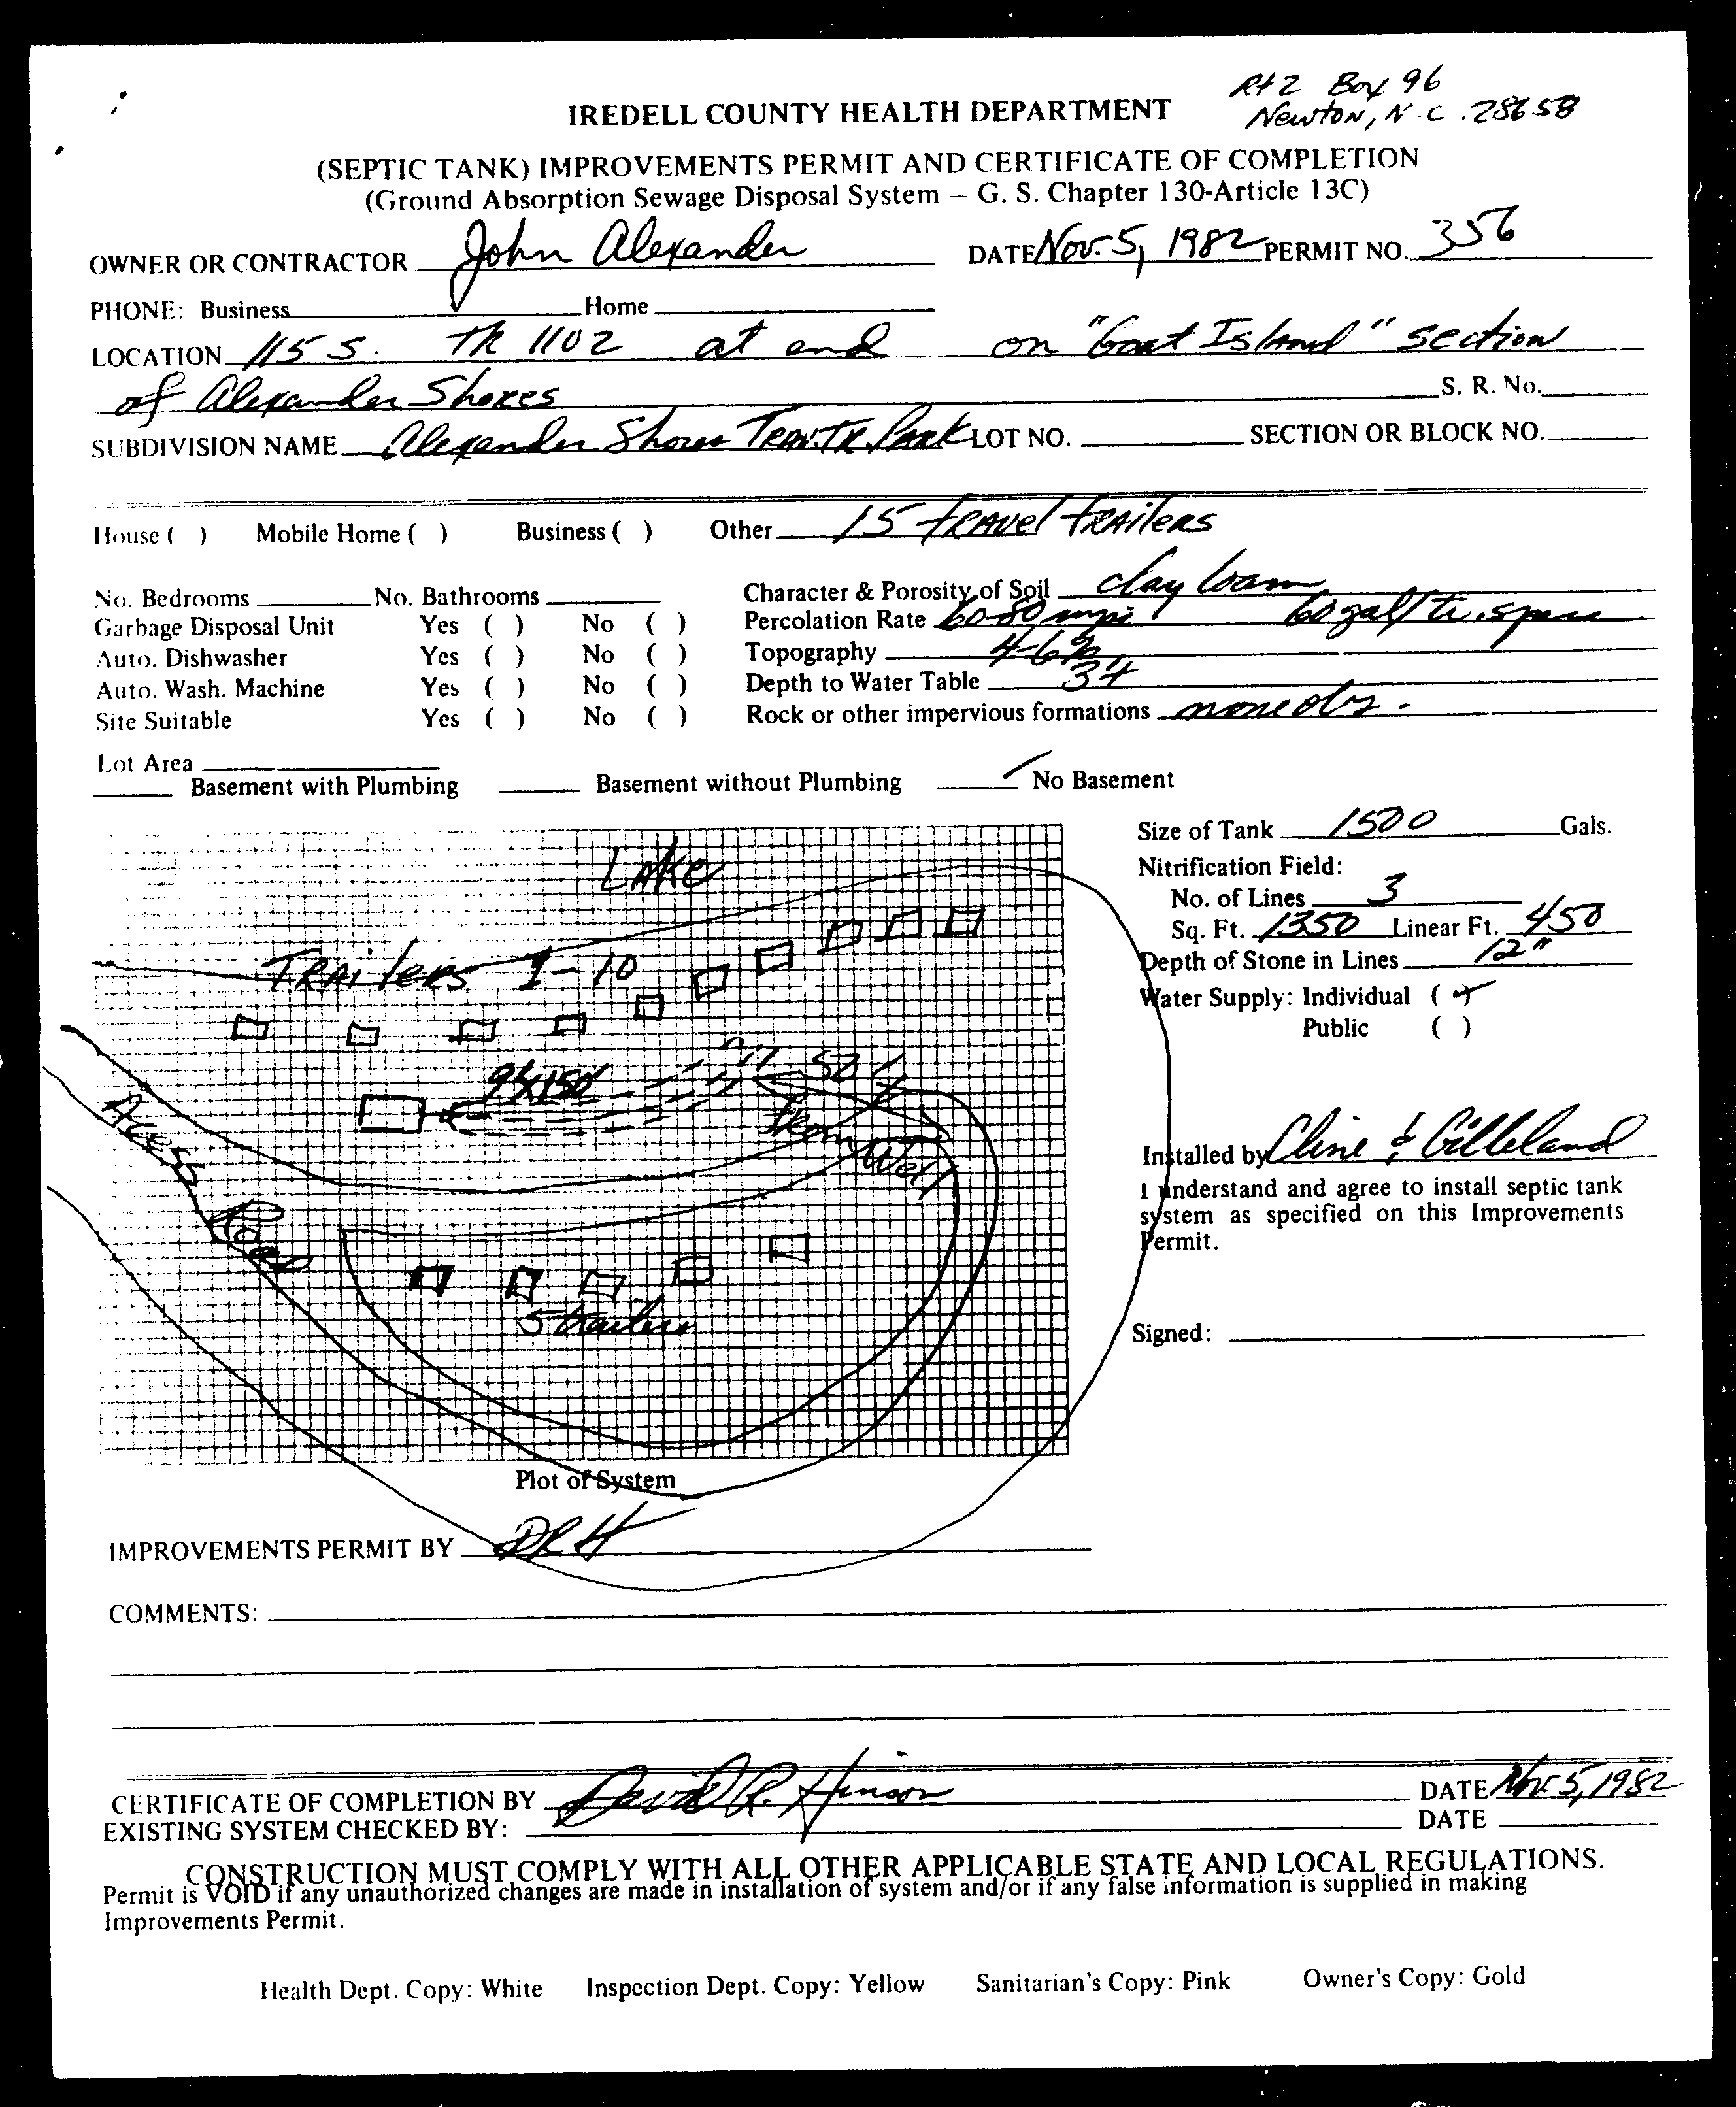 Rt 2 Box 96
IREDELL COUNTY HEALTH DEPARTMENT Newton, N.C. 28658
(SEPTIC TANK) IMPROVEMENTS PERMIT AND CERTIFICATE OF COMPLETION
(Ground Absorption Sewage Disposal System -- G. S. Chapter 130-Article 13C)
OWNER OR CONTRACTOR John Alexander DATE Nov. 5, 1982 PERMIT NO. 356
PHONE: Business Home
LOCATION 115 S. TR 1102 at end on "Goat Island" section
of Alexander Shores S. R. No.
SUBDIVISION NAME Alexander Shores Trav. Tr. Park LOT NO. SECTION OR BLOCK NO.
House ( ) Mobile Home ( ) Business ( ) Other 15 travel trailers
No. Bedrooms No. Bathrooms Character & Porosity of Soil clay loam
Garbage Disposal Unit Yes ( ) No ( ) Percolation Rate 60-80 mpi 60 gal/tr. space
Auto. Dishwasher Yes ( ) No ( ) Topography 4-6%
Auto. Wash. Machine Yes ( ) No ( ) Depth to Water Table 3'+
Site Suitable Yes ( ) No ( ) Rock or other impervious formations none obs.
Lot Area
Basement with Plumbing Basement without Plumbing ✓ No Basement
Size of Tank 1500 Gals.
Nitrification Field:
No. of Lines 3
Sq. Ft. 1350 Linear Ft. 450
Depth of Stone in Lines 12"
Water Supply: Individual (✓)
Public ( )
Lake
Trailers 1-10
50'
from
Well
Access
Road
5 trailers
Installed by Cline & Gilleland
I understand and agree to install septic tank
system as specified on this Improvements
Permit.
Signed:
Plot of System
IMPROVEMENTS PERMIT BY DRH
COMMENTS:
CERTIFICATE OF COMPLETION BY David R. Hinson DATE Nov 5, 1982
EXISTING SYSTEM CHECKED BY: DATE
CONSTRUCTION MUST COMPLY WITH ALL OTHER APPLICABLE STATE AND LOCAL REGULATIONS.
Permit is VOID if any unauthorized changes are made in installation of system and/or if any false information is supplied in making
Improvements Permit.
Health Dept. Copy: White Inspection Dept. Copy: Yellow Sanitarian's Copy: Pink Owner's Copy: Gold